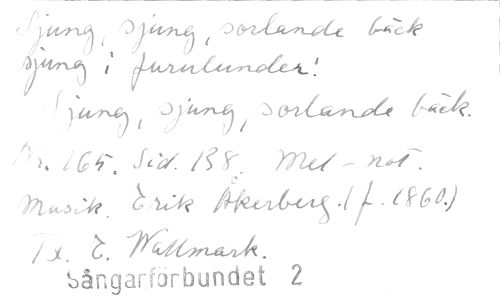 Sjung, sjung, sorlande bäck
sjung i furulunder!
Sjung, sjung, sorlande bäck.
Nr. 165. Sid. 138. Mel-not.
Musik. Erik Åkerberg. (f. 1860.)
Tx. E. Wallmark.
Sångarförbundet 2